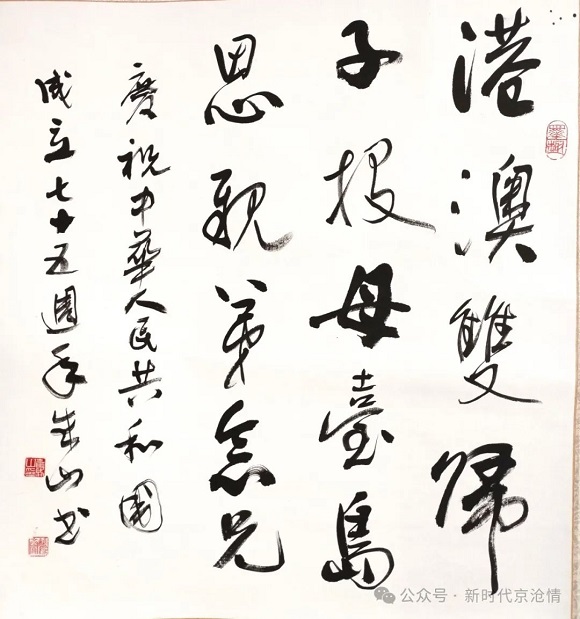 港澳雙歸
子投母臺島
思親弟念兄
慶祝中華人民共和國
成立七十五週年 山書
公众号·新时代京沧情